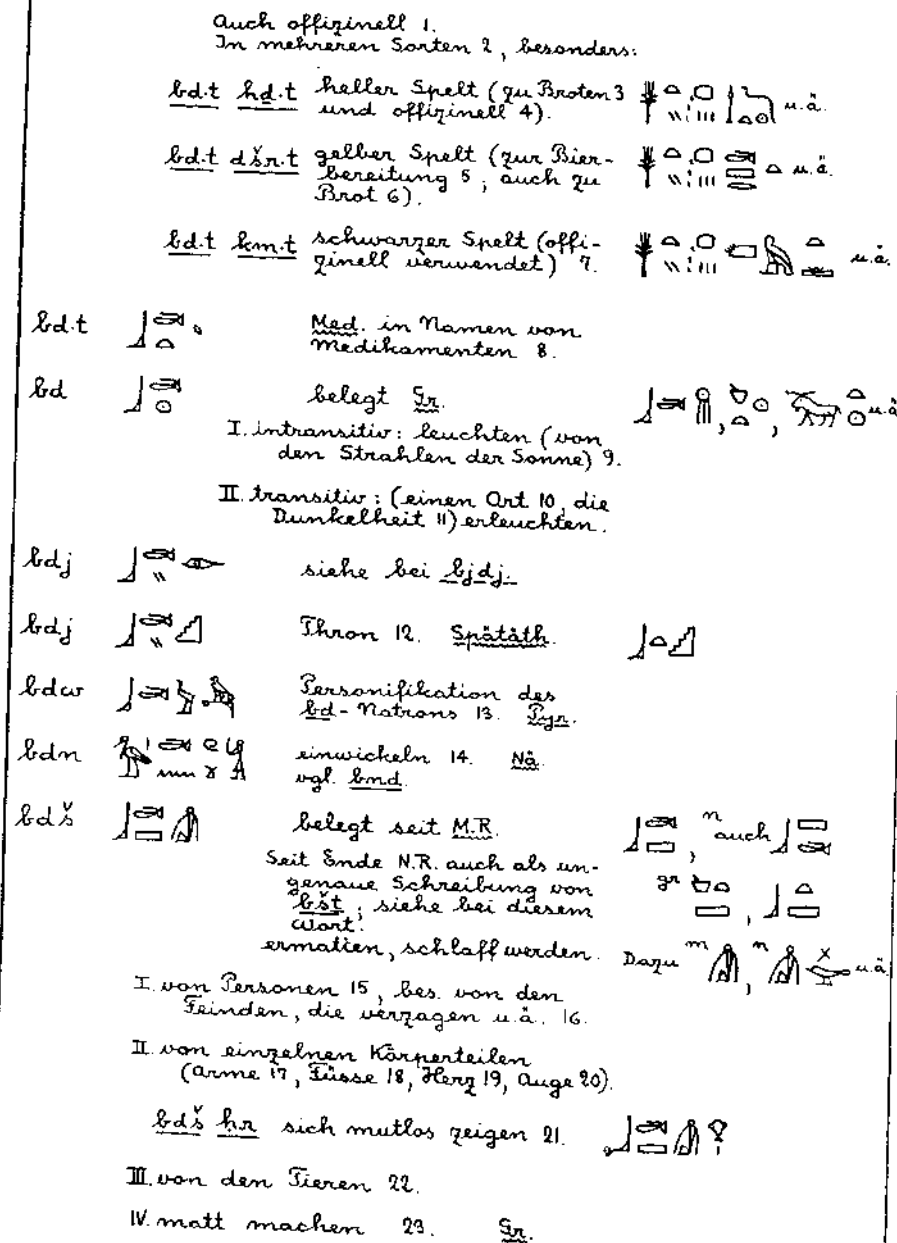 Auch offizinell 1.
In mehreren Sorten 2, besonders:
bd.t ḥḏ.t heller Spelt (zu Broten 3
und offizinell 4). u.ä.
bd.t dšr.t gelber Spelt (zur Bier-
bereitung 5, auch zu u.ä.
Brot 6).
bd.t km.t schwarzer Spelt (offi-
zinell verwendet) 7. u.ä.
bd.t Med. in Namen von
Medikamenten 8.
bd belegt Gr. u.ä.
I. intransitiv: leuchten (von
den Strahlen der Sonne) 9.
II. transitiv: (einen Ort 10, die
Dunkelheit 11) erleuchten.
bdj siehe bei bjdj.
bdj Thron 12. Spätäth.
bdw Personifikation des
bd-Natrons 13. Pyr.
bdn einwickeln 14. Nä.
vgl. bnd.
bdš belegt seit M.R. n auch
Seit Ende N.R. auch als un-
genaue Schreibung von gr
bšt; siehe bei diesem
Wort.
ermatten, schlaff werden. Dazu m n u.ä.
I. von Personen 15, bes. von den
Feinden, die verzagen u.ä. 16.
II. von einzelnen Körperteilen
(Arme 17, Füsse 18, Herz 19, Auge 20).
bdš ḥr sich mutlos zeigen 21.
III. von den Tieren 22.
IV. matt machen 23. Gr.